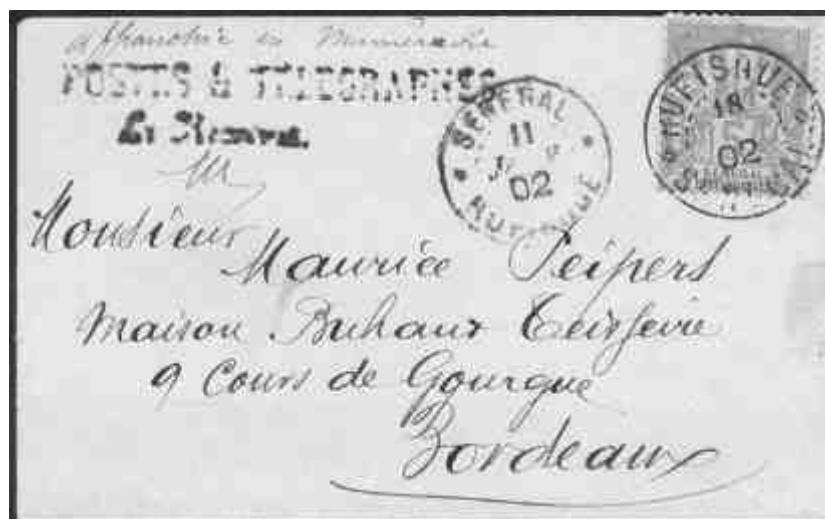 affranchie en Numéraire
POSTES & TÉLÉGRAPHES
Le Receveur.
SENEGAL
11
02
RUFISQUE
RUFISQUE
18
02
Monsieur
Maurice Peipers
Maison Buhaux Teisseire
9 Cours de Gourgue
Bordeaux